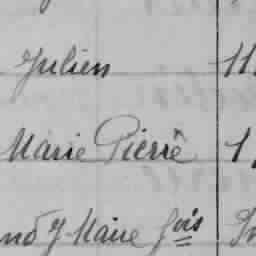 Julien 11
Marie Pierre 1
nd J Marie fois